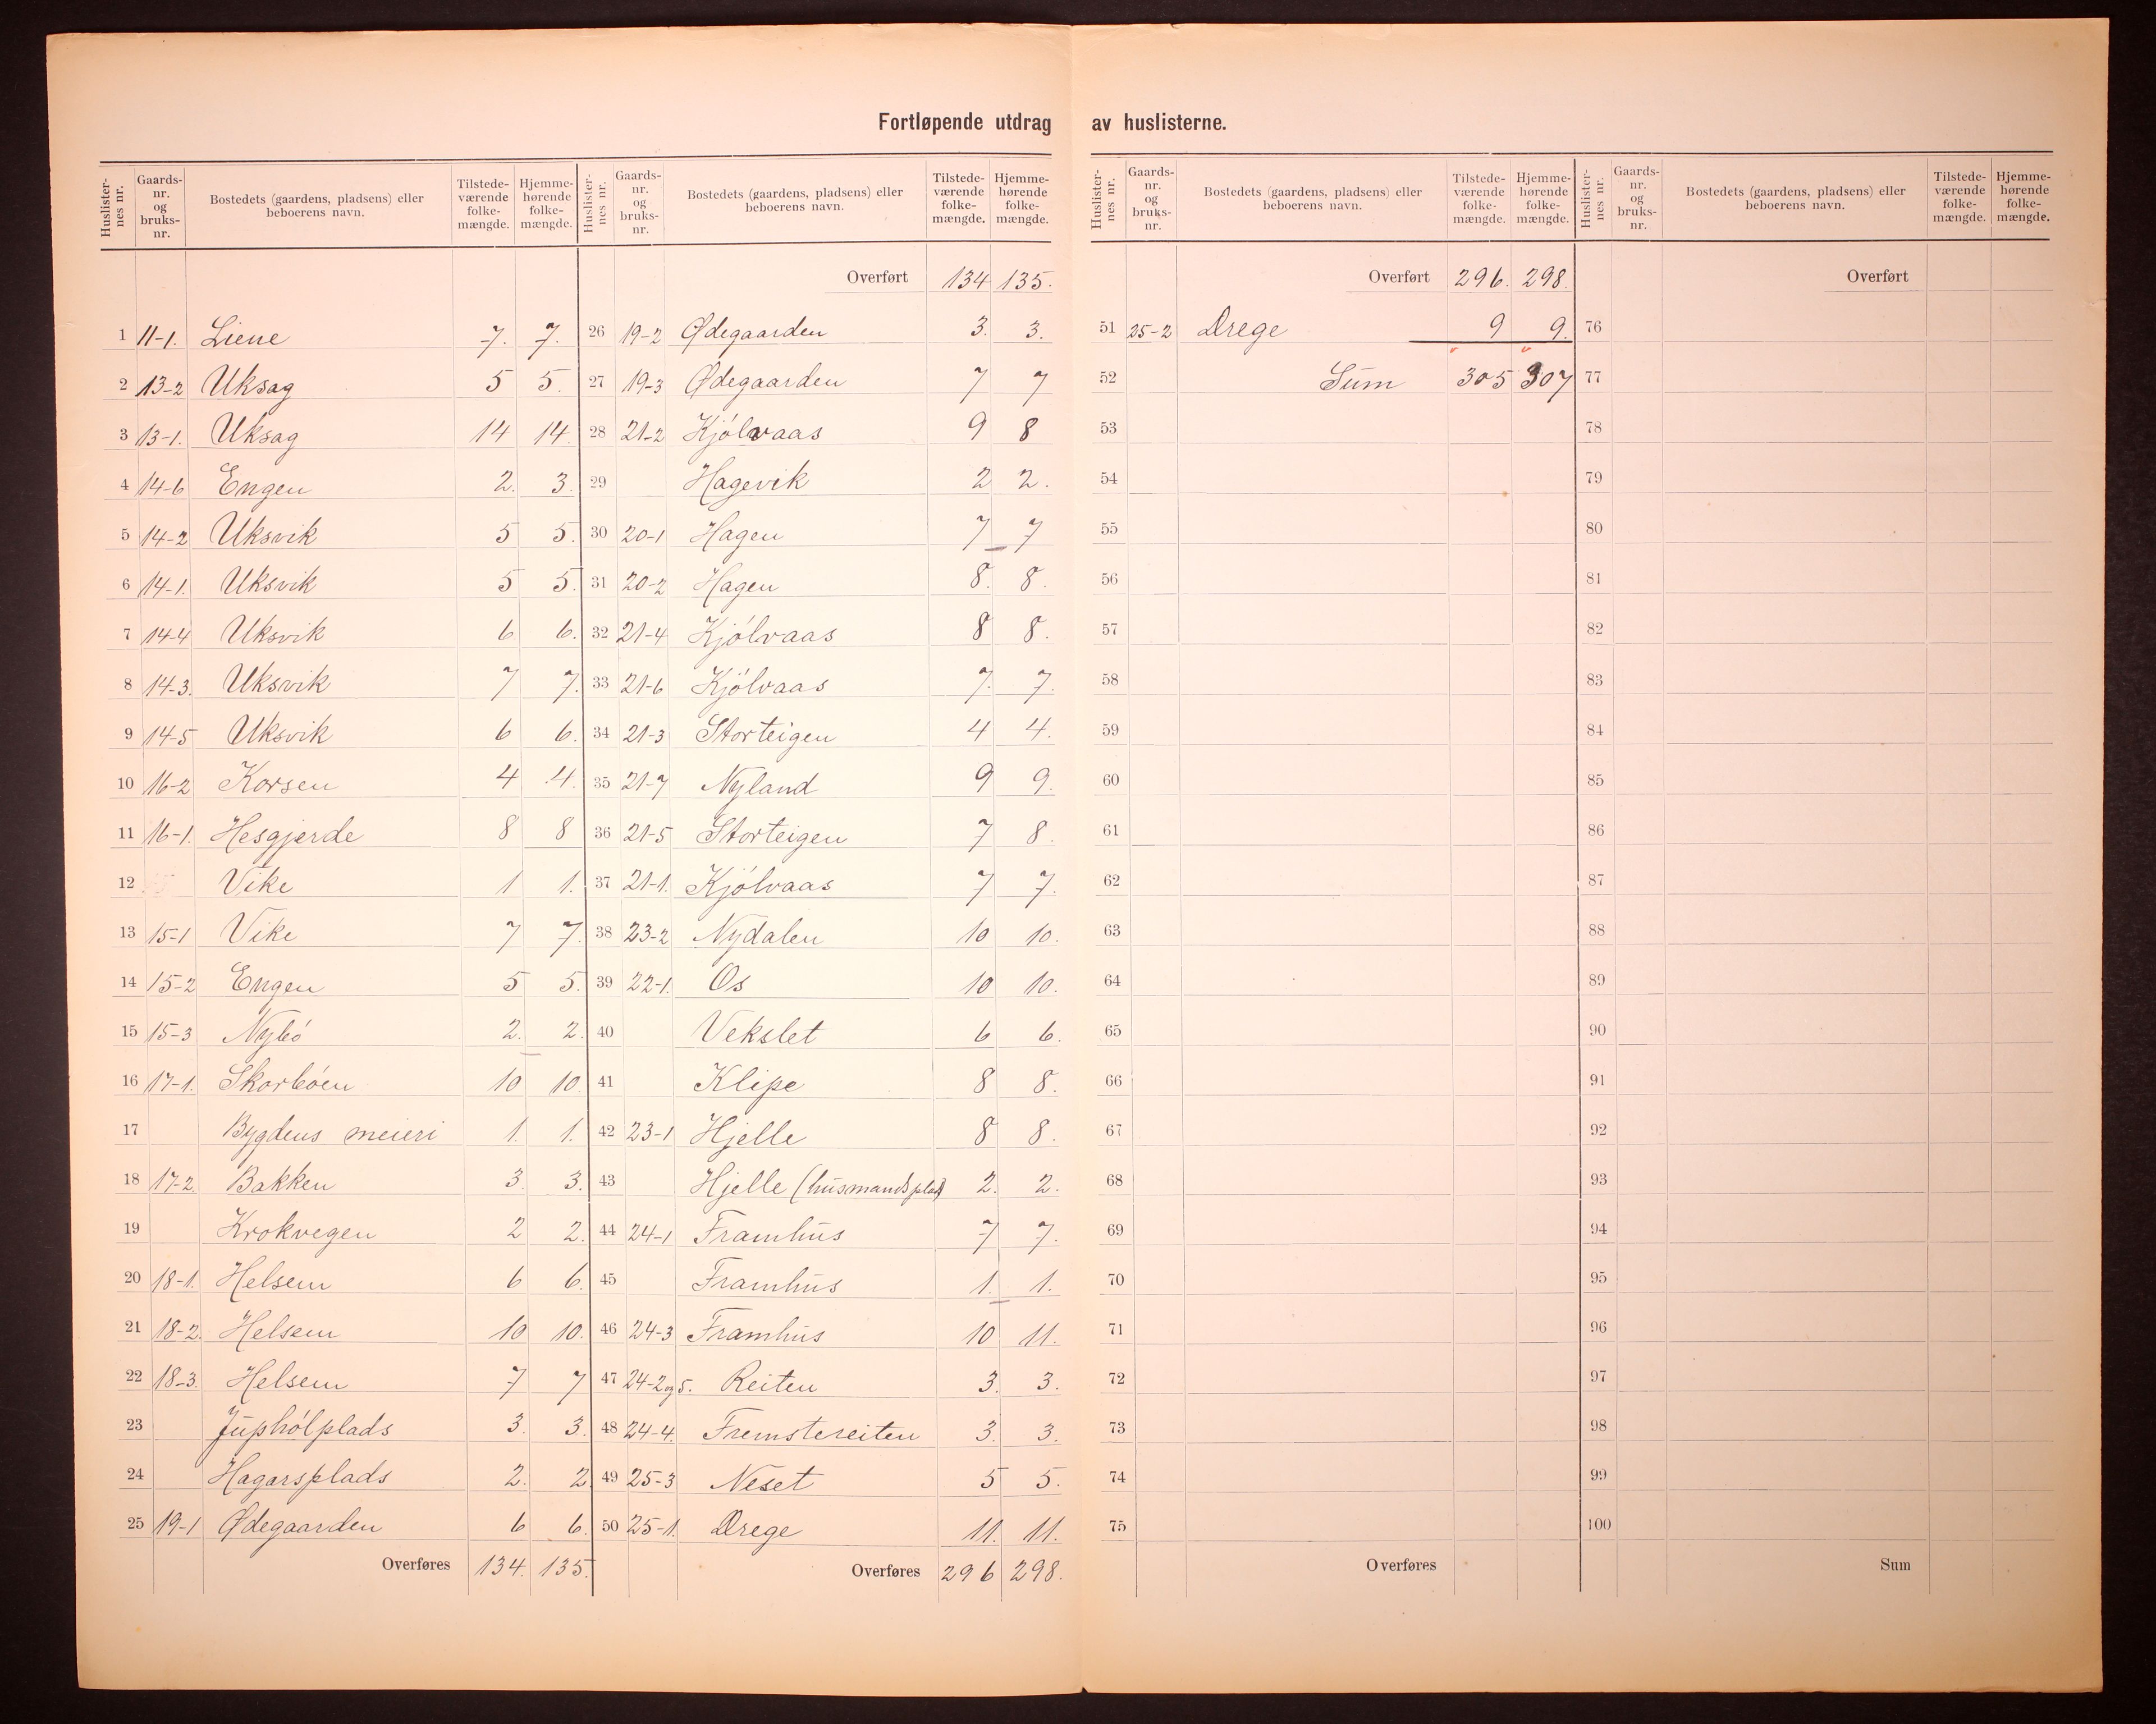 Fortløpende utdrag av huslisterne.
Huslisternes nr. Gaards-nr. og bruks-nr. Bostedets (gaardens, pladsens) eller beboerens navn. Tilstedeværende folkemængde. Hjemmehørende folkemængde.
1 11-1. Liene 7. 7.
2 13-2 Uksag 5 5.
3 13-1. Uksag 14 14.
4 14-6 Engen 2. 3.
5 14-2 Uksvik 5 5.
6 14-1. Uksvik 5 5.
7 14-4 Uksvik 6 6.
8 14-3. Uksvik 7 7.
9 14-5 Uksvik 6 6.
10 16-2 Korsen 4 4.
11 16-1. Hesgjerde 8 8
12 Vike 1 1.
13 15-1 Vike 7 7.
14 15-2 Engen 5 5.
15 15-3 Nybó 2. 2.
16 17-1. Skorbóen 10 10.
17 Bygdens meieri 1. 1.
18 17-2. Bakken 3. 3.
19 Krokvegen 2 2.
20 18-1. Helsem 6 6.
21 18-2. Helsem 10 10.
22 18-3. Helsem 7 7
23 Juphólplads 3. 3.
24 Hagarsplads 2. 2.
25 19-1 Ødegaarden 6 6.
Overføres 134. 135.
Huslisternes nr. Gaards-nr. og bruks-nr. Bostedets (gaardens, pladsens) eller beboerens navn. Tilstedeværende folkemængde. Hjemmehørende folkemængde.
Overført 134 135.
26 19-2 Ødegaarden 3. 3.
27 19-3 Ødegaarden 7 7
28 21-2 Kjólvaas 9 8
29 Hagevik 2 2.
30 20-1 Hagen 7 7
31 20-2 Hagen 8. 8.
32 21-4 Kjólvaas 8 8.
33 21-6 Kjólvaas 7. 7.
34 21-3 Storteigen 4 4.
35 21-7 Nyland 9 9.
36 21-5 Storteigen 7 8.
37 21-1. Kjólvaas 7 7.
38 23-2 Nydalen 10 10.
39 22-1. Os 10 10.
40 Vekslet 6 6.
41 Klipe 8 8.
42 23-1 Hjelle 8 8.
43 Hjelle (husmandsplad) 2. 2.
44 24-1 Framhus 7 7.
45 Framhus 1. 1.
46 24-3 Framhus 10 11.
47 24-2 og 5. Reiten 3. 3.
48 24-4. Fremstereiten 3. 3.
49 25-3 Neset 5 5.
50 25-1. Drege 11. 11.
Overføres 296 298.
Huslisternes nr. Gaards-nr. og bruks-nr. Bostedets (gaardens, pladsens) eller beboerens navn. Tilstedeværende folkemængde. Hjemmehørende folkemængde.
Overført 296. 298.
51 25-2 Drege 9 9.
52 Sum 305 307
53
54
55
56
57
58
59
60
61
62
63
64
65
66
67
68
69
70
71
72
73
74
75
Overføres
Huslisternes nr. Gaards-nr. og bruks-nr. Bostedets (gaardens, pladsens) eller beboerens navn. Tilstedeværende folkemængde. Hjemmehørende folkemængde.
Overført
76
77
78
79
80
81
82
83
84
85
86
87
88
89
90
91
92
93
94
95
96
97
98
99
100
Sum